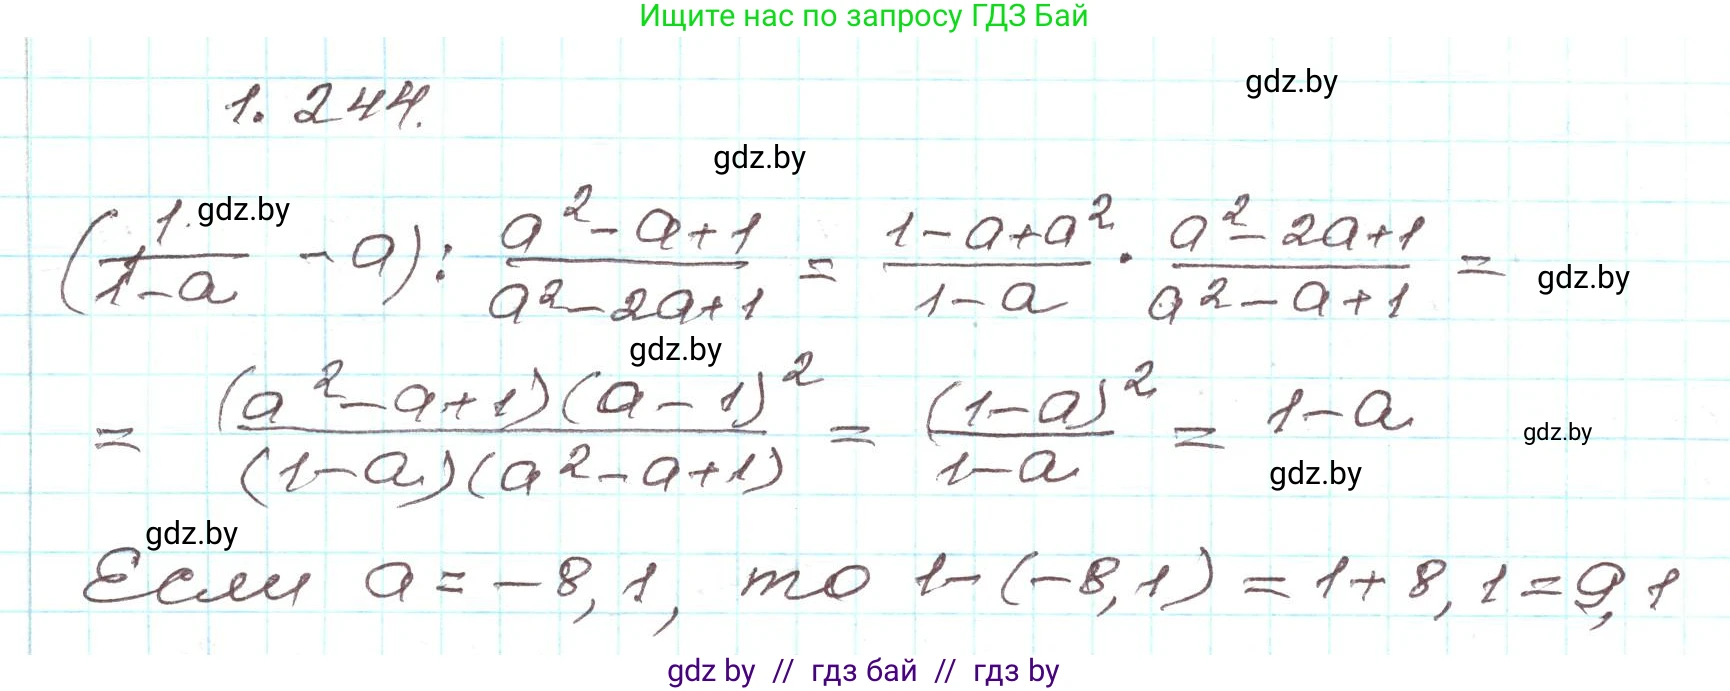 Ищите нас по запросу ГДЗ Бай
gdz.by
1.244.
gdz.by
gdz.by
(1/(1-a) - a) : (a²-a+1)/(a²-2a+1) = (1-a+a²)/(1-a) · (a²-2a+1)/(a²-a+1) =
gdz.by
gdz.by
= ((a²-a+1)(a-1)²)/((1-a)(a²-a+1)) = (1-a)²/(1-a) = 1-a
gdz.by
gdz.by
gdz.by
Если a = -8,1, то 1-(-8,1) = 1+8,1=9,1
gdz by // гдз бай // гдз by